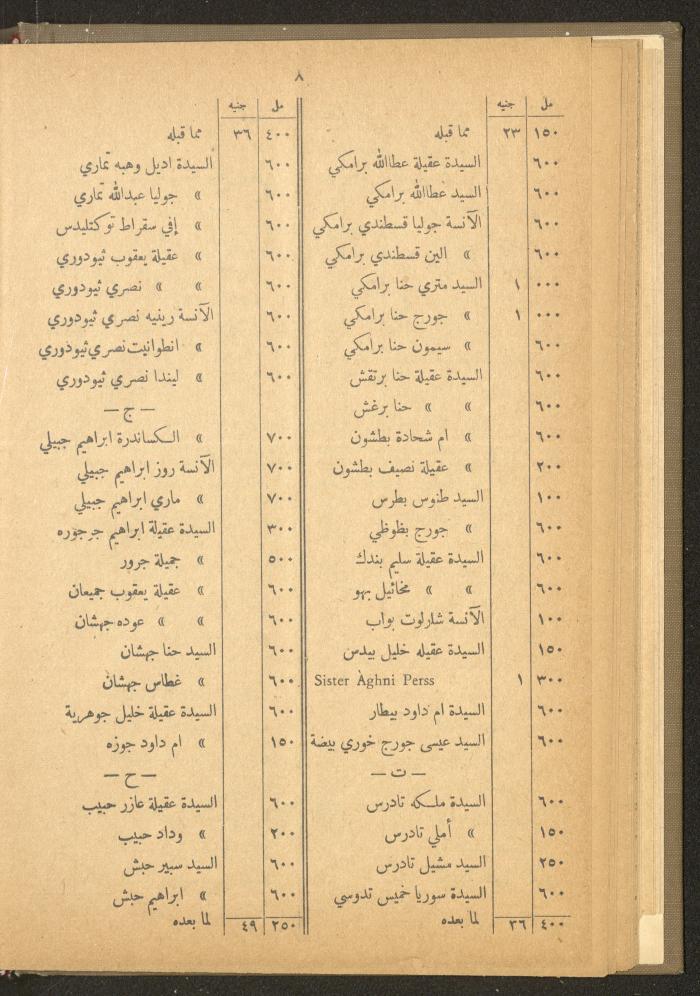 ٨
مل جنيه
١٥٠ ٢٣ مما قبله
٦٠٠ السيدة عقيلة عطاالله برامكي
٦٠٠ السيد عطاالله برامكي
٦٠٠ الآنسة جوليا قسطندي برامكي
٦٠٠ » الين قسطندي برامكي
٠٠٠ ١ السيد متري حنا برامكي
٠٠٠ ١ » جورج حنا برامكي
٦٠٠ » سيمون حنا برامكي
٦٠٠ السيدة عقيلة حنا برتقش
٦٠٠ » » حنا برغش
٦٠٠ » ام شحادة بطشون
٢٠٠ » عقيلة نصيف بطشون
١٠٠ السيد طنوس بطرس
٦٠٠ » جورج بظوظي
٦٠٠ السيدة عقيلة سليم بندك
٦٠٠ » » مخائيل بهو
١٠٠ الآنسة شارلوت بواب
١٥٠ السيدة عقيله خليل بيدس
٣٠٠ ١ Sister Aghni Perss
٦٠٠ السيدة ام داود بيطار
٦٠٠ السيد عيسى جورج خوري بيضة
— ت —
٦٠٠ السيدة ملكه تادرس
١٥٠ » أملي تادرس
٢٥٠ السيد مشيل تادرس
٦٠٠ السيدة سوريا خميس تدوسي
٤٠٠ ٣٦ لما بعده
مل جنيه
٤٠٠ ٣٦ مما قبله
٦٠٠ السيدة اديل وهبه تماري
٦٠٠ » جوليا عبدالله تماري
٦٠٠ » إفي سقراط توكتليدس
٦٠٠ » عقيلة يعقوب ثيودوري
٦٠٠ » » نصري ثيودوري
٦٠٠ الآنسة رينيه نصري ثيودوري
٦٠٠ » انطوانيت نصري ثيودوري
٦٠٠ » ليندا نصري ثيودوري
— ج —
٧٠٠ » الكساندرة ابراهيم جبيلي
٧٠٠ الآنسة روز ابراهيم جبيلي
٧٠٠ » ماري ابراهيم جبيلي
٣٠٠ السيدة عقيلة ابراهيم جرجوره
٥٠٠ » جميلة جرور
٦٠٠ » عقيلة يعقوب جميعان
٦٠٠ » » عوده جهشان
٦٠٠ السيد حنا جهشان
٦٠٠ » غطاس جهشان
٦٠٠ السيدة عقيلة خليل جوهرية
١٥٠ » ام داود جوزه
— ح —
٦٠٠ السيدة عقيلة عازر حبيب
٢٠٠ » وداد حبيب
٦٠٠ السيد سبير حبش
٦٠٠ » ابراهيم حبش
٢٥٠ ٤٩ لما بعده